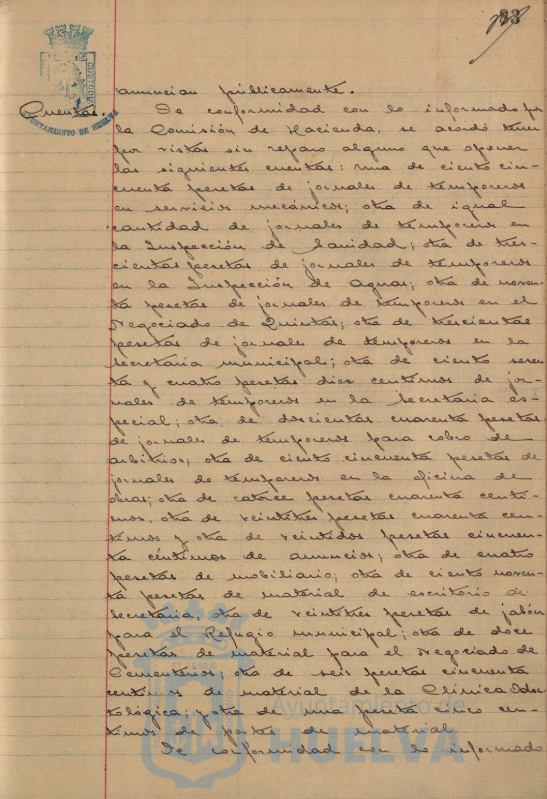 83
CUSTODIA
AYUNTAMIENTO DE HUELVA
anuncian públicamente.
Cuentas.
De conformidad con lo informado por
la Comisión de Hacienda, se acordó tener
por vistas sin reparo alguno que oponer
las siguientes cuentas: una de ciento cin-
cuenta pesetas de jornales de temporeros
en servicios mecánicos; otra de igual
cantidad de jornales de temporeros en
la Inspección de Sanidad; otra de tres-
cientas pesetas de jornales de temporeros
en la Inspección de Aguas; otra de noven-
ta pesetas de jornales de temporeros en el
Negociado de Quintas; otra de trescientas
pesetas de jornales de temporeros en la
secretaria municipal; otra de ciento seten-
ta y cuatro pesetas diez centimos de jor-
nales de temporeros en la Secretaria es-
pecial; otra de doscientas cuarenta pesetas
de jornales de temporeros para cobro de
arbitrios; otra de ciento cincuenta pesetas de
jornales de temporeros en la oficina de
obras; otra de catorce pesetas cuarenta centi-
mos, otra de veintitres pesetas cuarenta cen-
timos y otra de veintidos pesetas cincuen-
ta céntimos de anuncios; otra de cuatro
pesetas de mobiliario; otra de ciento noven-
ta pesetas de material de escritorio de
Secretaria; otra de veintitres pesetas de jabón
para el Refugio municipal; otra de doce
pesetas de material para el Negociado de
Cementerios; otra de seis pesetas cincuenta
centimos de material de la Clínica Odon-
tológica; y otra de una peseta cinco cen-
timos de portes de material.
De conformidad con lo informado
Ayuntamiento de
HUELVA